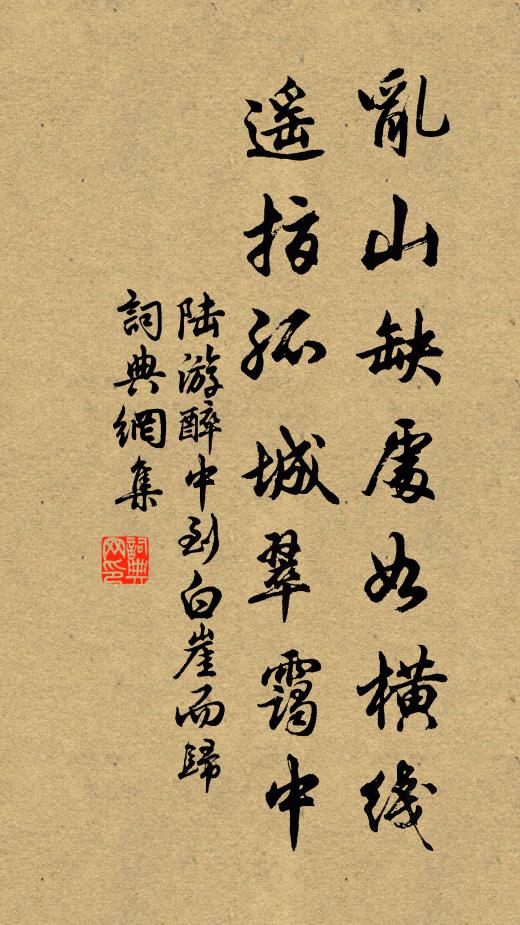 亂山缺處如橫线
遥指孤城翠靄中
陆游醉中到白崖而歸
詞典網集
詞典网印